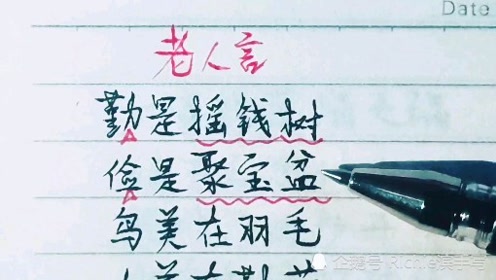 Date
老人言
勤是摇钱树
俭是聚宝盆
鸟美在羽毛